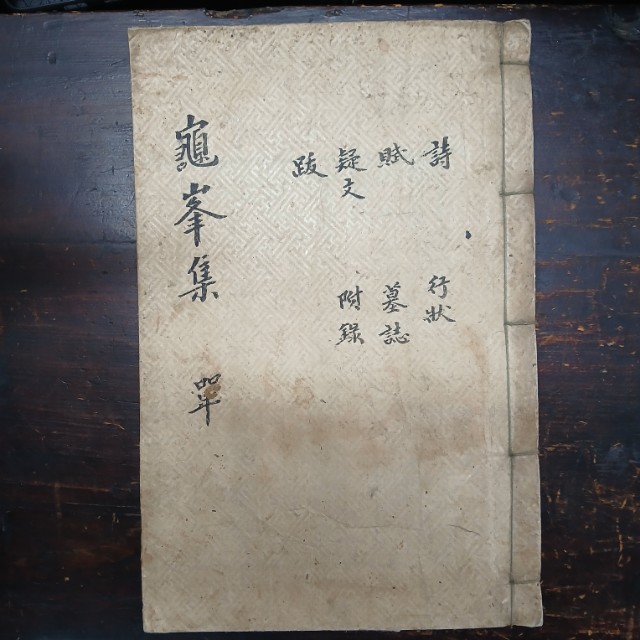 詩 行狀
賦 墓誌
疑文 附錄
跋
龜峯集 單